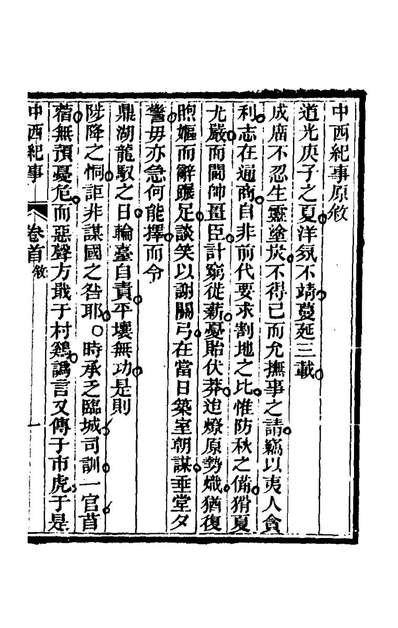 中西紀事原敘
道光庚子之夏洋氛不靖蔓延三載
成庿不忍生靈塗炭不得已而允撫事之請竊以夷人貪
利志在通商自非前代要求割地之比惟防秋之備猾夏
尤嚴而閫帥畺臣計窮徙薪憂貽伏莽迨燎原勢熾猶復
煦嫗而辭躡足談笑以謝關弓在當日築室朝謀垂堂夕
警毋亦急何能擇而今
鼎湖龍馭之日輪臺自責平壤無功是則
陟降之恫詎非謀國之咎耶。時承乏臨城司訓一官苜
蓿無預憂危而惡聲方戢于村鷄譌言又傳于市虎于是
中西紀事 卷首敘 一